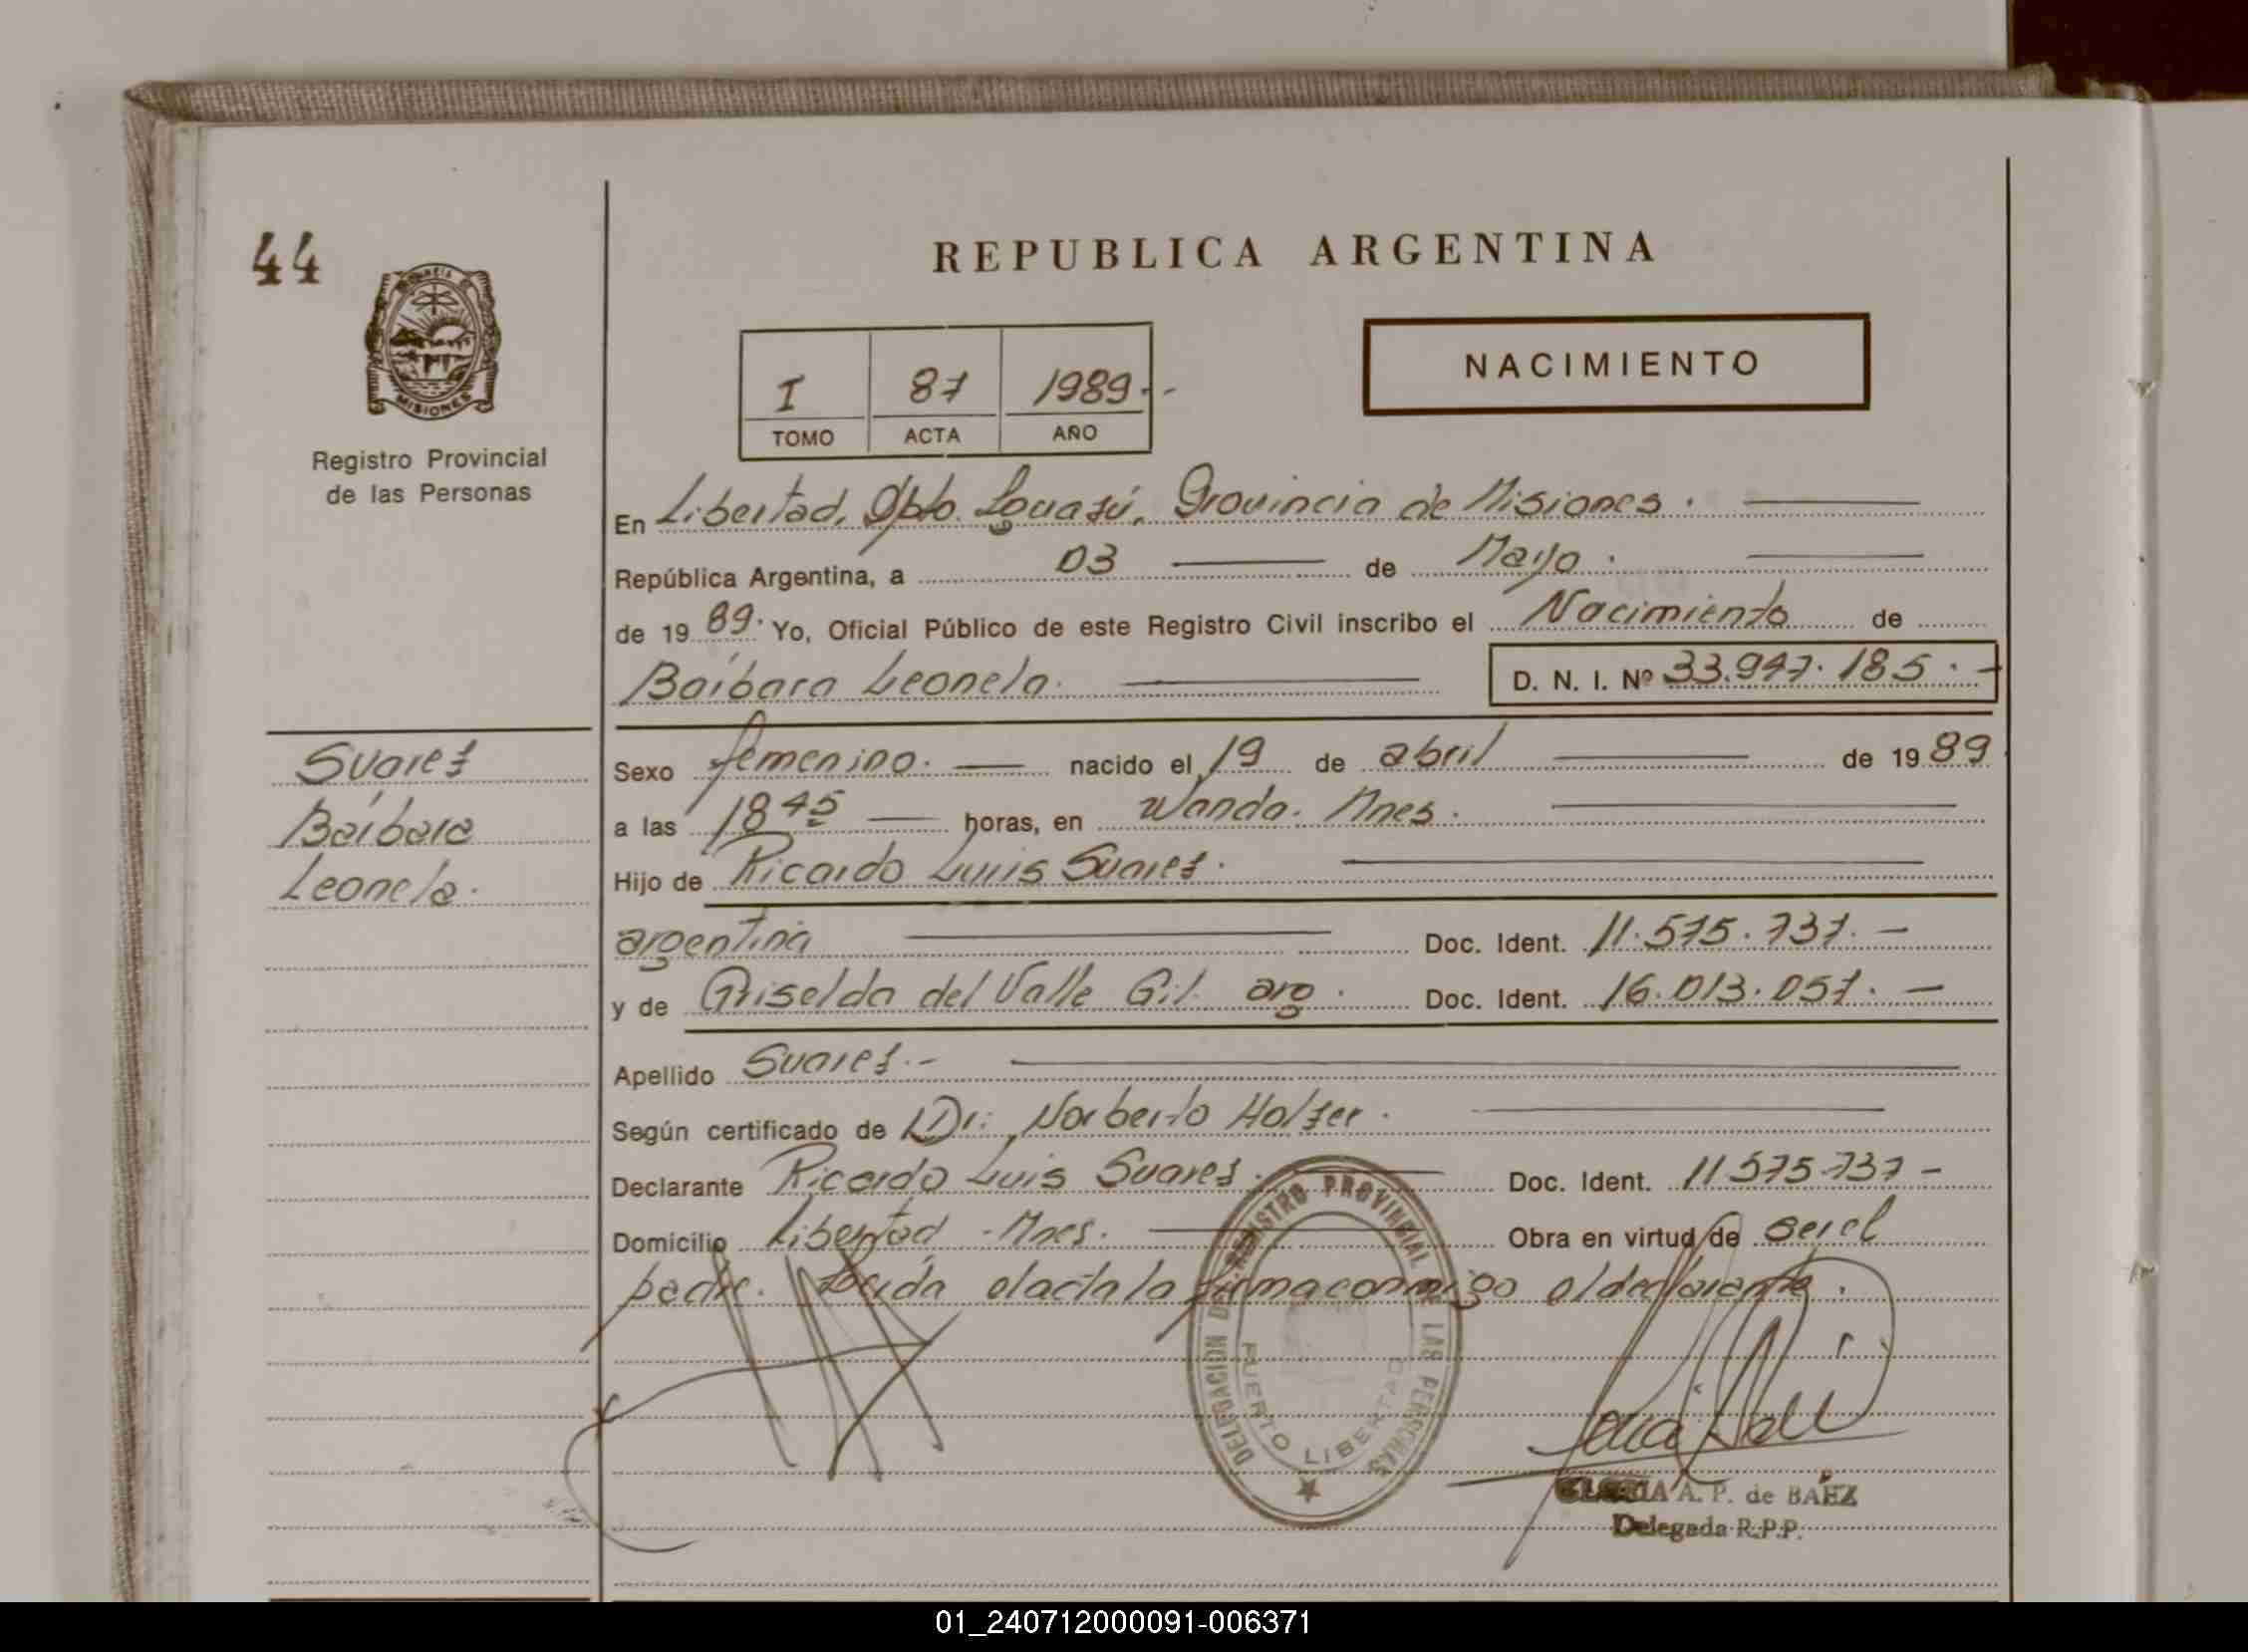 44
REPUBLICA ARGENTINA
NACIMIENTO
I 87 1989.-
TOMO ACTA AÑO
MISIONES
Registro Provincial
de las Personas
En Libertad, Dpto. Iguazú, Provincia de Misiones.
República Argentina, a 03 de Mayo.
de 1989. Yo, Oficial Público de este Registro Civil inscribo el Nacimiento de
Bárbara Leonela. D. N. I. Nº 33.947.185.-
Suarez
Bárbara
Leonela.
Sexo femenino. nacido el 19 de abril de 1989
a las 18 45 horas, en Wanda. Mnes.
Hijo de Ricardo Luis Suarez.
argentina Doc. Ident. 11.575.737.-
y de Griselda del Valle Gil arg. Doc. Ident. 16.013.057.-
Apellido Suarez.-
Según certificado de Dr. Norberto Holzer.
Declarante Ricardo Luis Suarez. Doc. Ident. 11575737-
Domicilio Libertad - Mnes. Obra en virtud de ser el
padre. Leida el acta la firma conmigo el declarante.
DELEGACION DEL REGISTRO PROVINCIAL DE LAS PERSONAS
PUERTO LIBERTAD
A. P. de BAEZ
Delegada R.P.P.
01_240712000091-006371